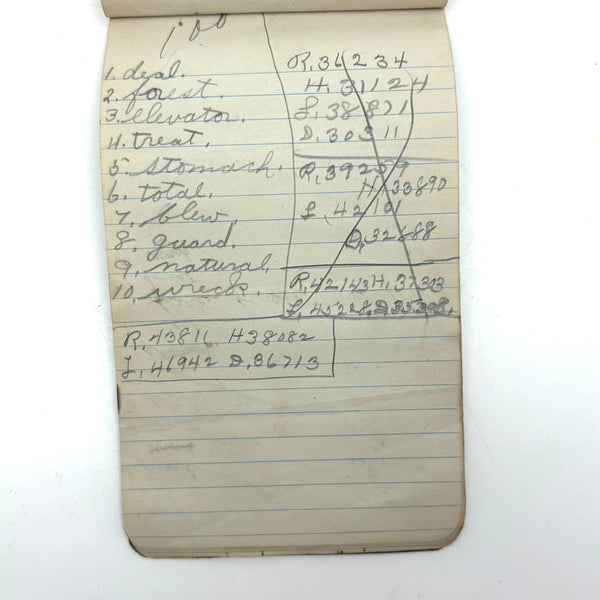 100
1. deal.
2. forest.
3. elevator.
4. treat.
5. stomach.
6. total.
7. blew.
8. guard.
9. natural.
10. wreck.
R. 36234
H. 31124
L. 38871
D. 30311
R. 39259
H. 33890
L. 42101
D. 32688
R. 42143 H. 37303
L. 45228. D. 35398.
R. 43816 H 38082
L. 46942 D. 36713